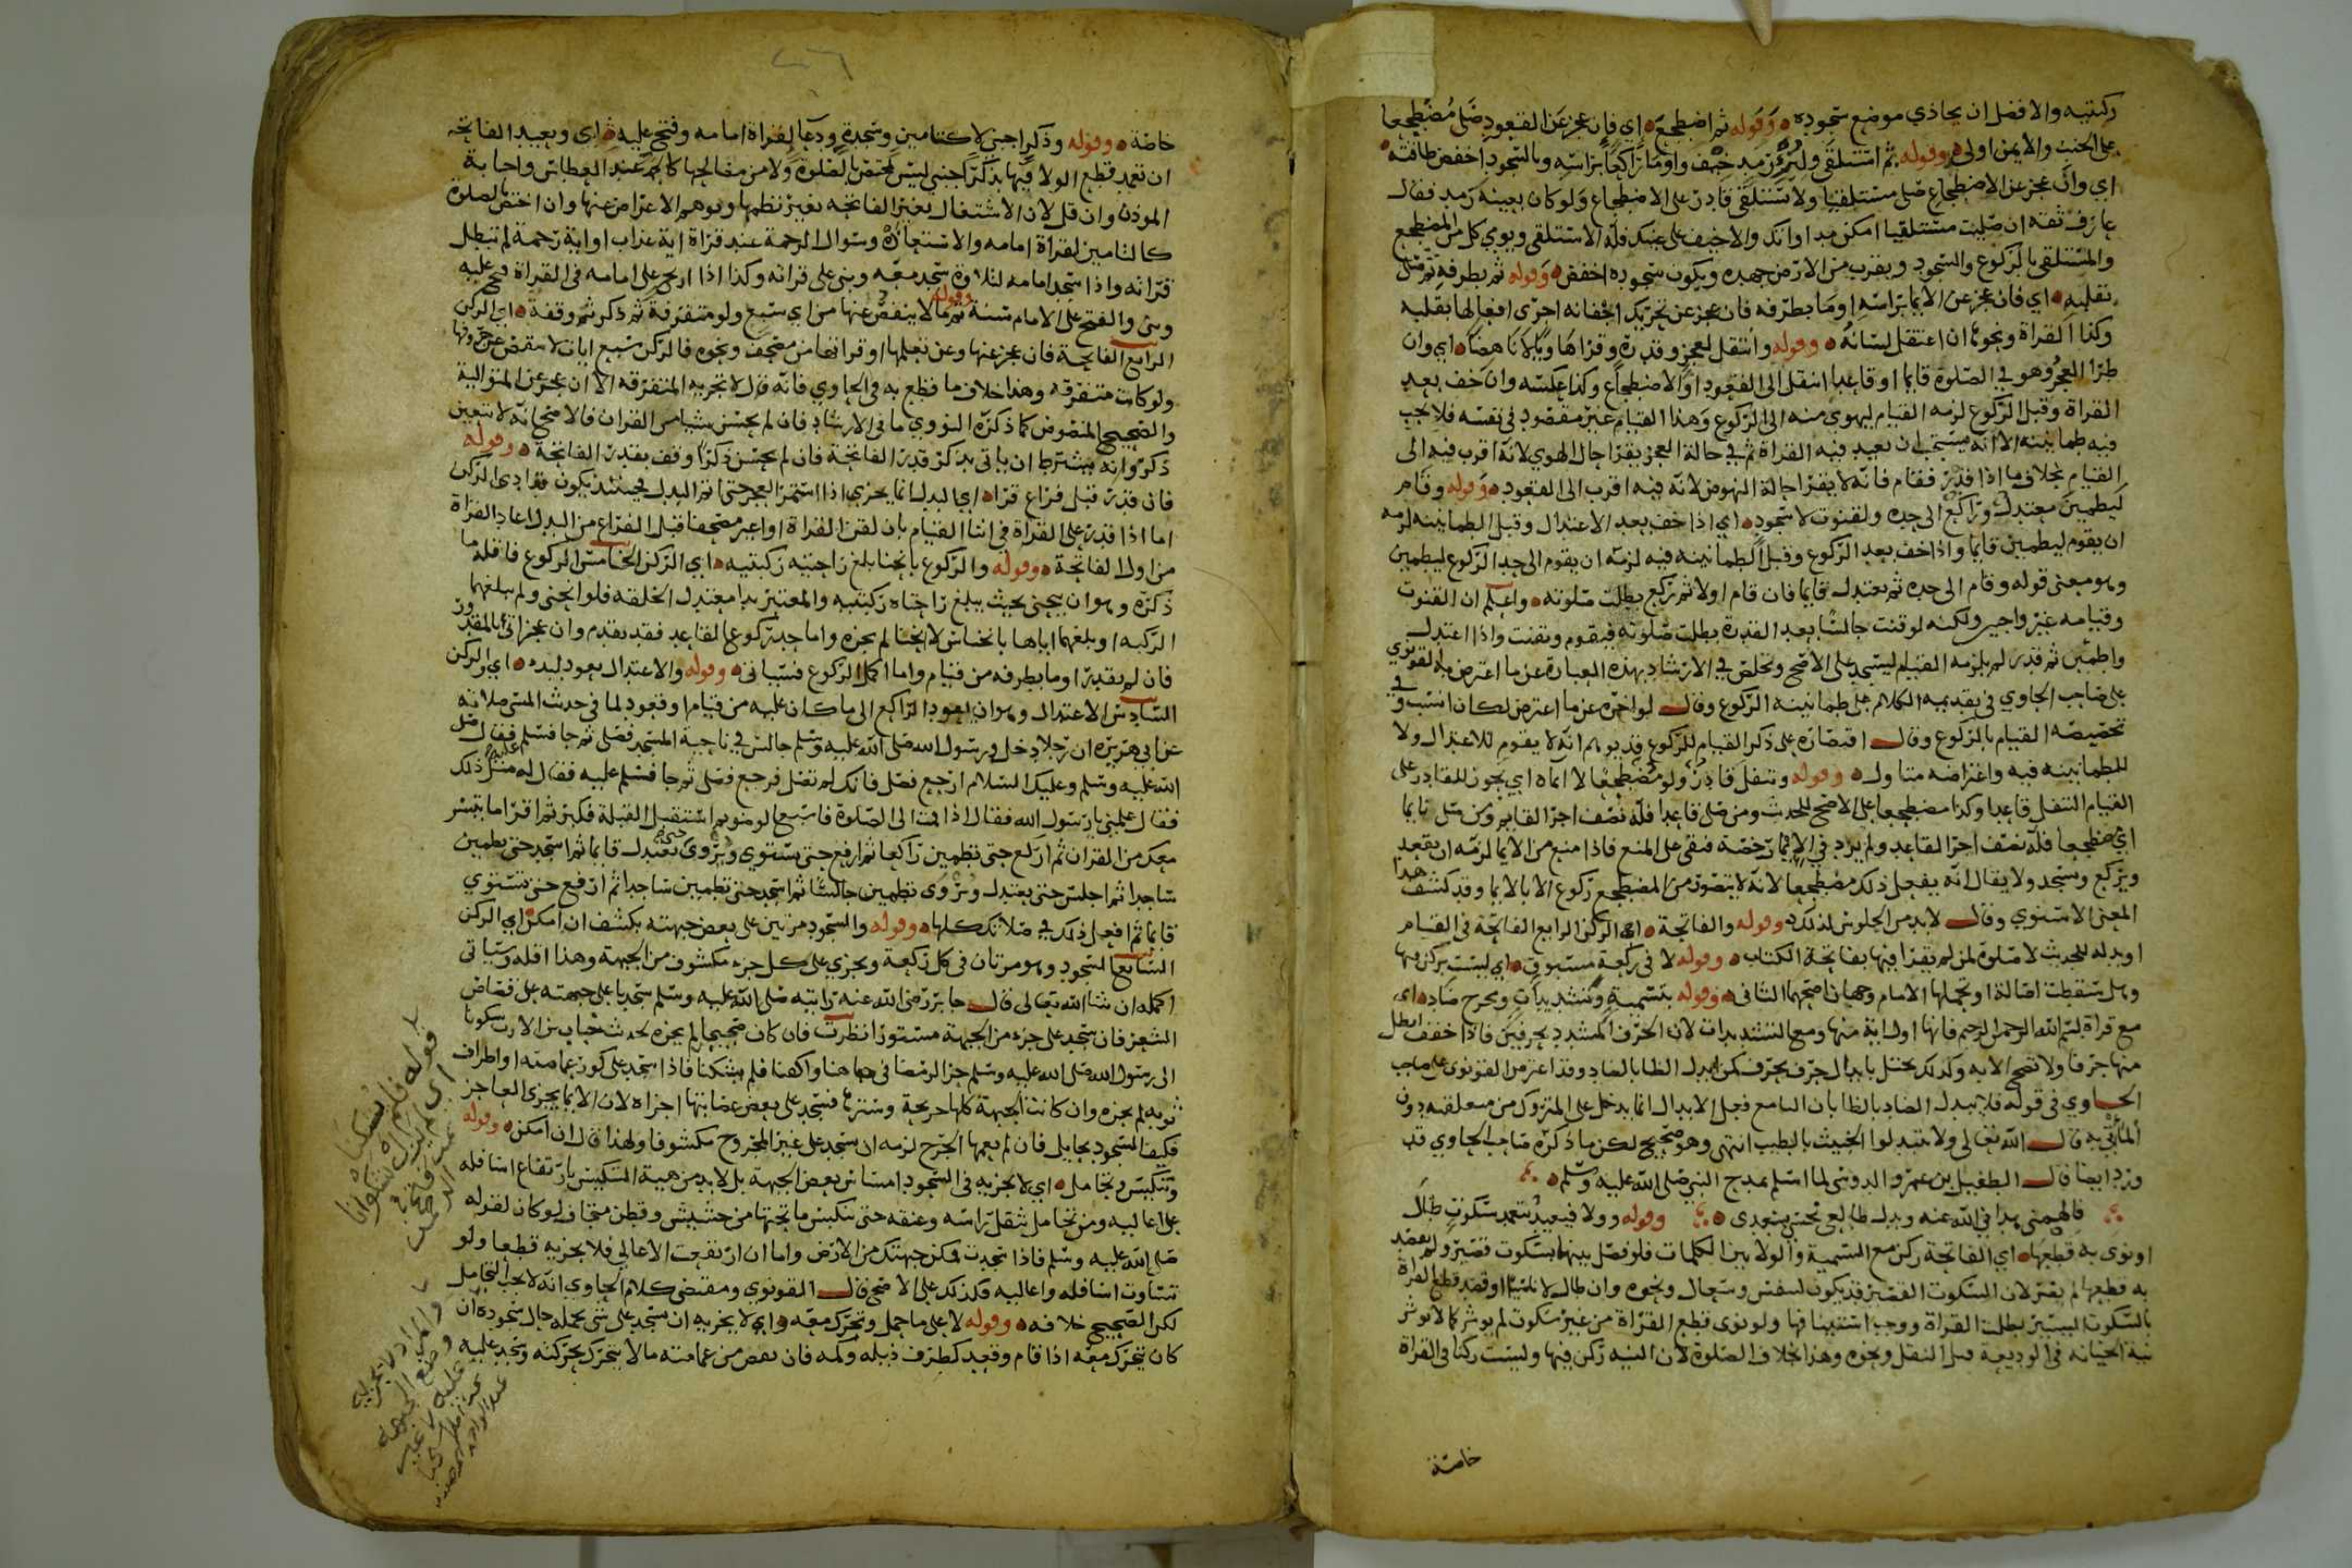 ركبتيه والافضل ان يحاذي موضع سجوده وقوله ثم اضطجع اي فان عجز عن القعود صلى مضطجعا
على الجنب والايمن اولى وقوله ثم استلقى ولو من رمد خيف واومأ راكعا براسه وبالسجود اخفض طاقته
اي وان عجز عن الاضطجاع صلى مستلقيا ولا يستلقي قادر على الاضطجاع ولو كان بعينه رمد فقال
عارف ثقه ان صليت مستلقيا امكن مداواتك والا خيف على عينك فله الاستلقى ويومي كل من المضطجع
والمستلقي بالركوع والسجود ويقرب من الارض جهده ويكون سجوده اخفض وقوله ثم بطرفه ثم مثل
بقلبه اي فان عجز عن الايما براسه اوما بطرفه فان عجز عن تحريك اجفانه اجرى افعالها بقلبه
وكذا القراة ونحوها ان اعتقل لسانه وقوله وانتقل لعجز وقدرة وقراها وياً لا ناهضا اي وان
طرا العجز وهو في الصلوة قايما او قاعدا انتقل الى القعود او الاضطجاع وكذا عكسه وان خف بعد
القراة وقبل الركوع لزمه القيام ليهوي منه الى الركوع وهذا القيام غير مقصود في نفسه فلا تجب
فيه طمانينه الا انه يستحب ان يعيد فيه القراة ثم في حالة العجز يقرا حال الهوي لانه اقرب فيه الى
القيام بخلاف ما اذا قدر فقام فانه لا يقرا حالة النهوض لانه فيه اقرب الى القعود وقوله وقام
ليطمين معتدل وراكع الى حده ولقنوت لا سجود اي اذا خف بعد الاعتدال وقبل الطمانينه لزمه
ان يقوم ليطمين قايما واذا خف بعد الركوع وقبل الطمانينه فيه لزمه ان يقوم الى حد الركوع ليطمين
وهو معنى قوله وقام الى حده ثم يعتدل قايما فان قام اولا ثم ركع بطلت صلوته واعلم ان القنوت
وقيامه غير واجبين ولكنه لو قنت جالسا بعد القدرة بطلت صلوته فيقوم ويقنت واذا اعتدل
واطمين ثم قدر لم يلزمه القيام ليسجد على الاصح وتخلص في الارشاد بهذه العبارة عن ما اعترض به القونوي
على صاحب الحاوي في تقديمه الكلام على طمانينة الركوع وقال لو اخره عن ما اعترض لكان انسب وفي
تخصيصه القيام بالركوع وقال اقتصاره على ذكر القيام للركوع قد يوهم انه لا يقوم للاعتدال ولا
للطمانينه فيه واغراضه متاول وقوله وتنفل قادر ولو مضطجعا لا ايماه اي يجوز للقادر على
القيام التنفل قاعدا وكذا مضطجعا على الاصح للحديث ومن صلى قاعدا فله نصف اجر القايم ومن صلى نايما
اي مضطجعا فله نصف اجر القاعد ولم يرد في الايما رخصة فبقي على المنع فاذا منع من الايما لزمه ان يقعد
ويركع ويسجد ولا يقال انه يفعل ذلك مضطجعا لانه لا يتصور من المضطجع ركوع الا بالايما وقد كشف هذا
المعنى الاسنوي وقال لا بد من الجلوس لذلك وقوله والفاتحة اي الركن الرابع الفاتحة في القيام
او بدله للحديث لا صلوة لمن لم يقرا فيها بفاتحة الكتاب وقوله لا في ركعة مسبوق اي ليست بركن فيها
وهل سقطت اصالة او تحملها الامام وجهان اصحهما الثاني وقوله بتسمية وتشديدات ومخرج ضاد اي
مع قراة بسم الله الرحمن الرحيم فانها اول اية منها ومع التشديدات لان الحرف المشدد بحرفين فاذا خفف ابطل
منها حرفا ولا تصح الا به وكذلك يختل بابدال حرف بحرف كمن ابدل الظا بالضاد وقد اعترض القونوي على صاحب
الحاوي في قوله فلا تبدل الضاد بالظا بان السامع فجعل الابدال انما يدخل على المتروك من متعلقيه دون
الماتي به قال الله تعالى ولا تتبدلوا الخبيث بالطيب انتهى وهو صحيح لكن ما ذكره صاحب الحاوي قد
ورد ايضا قال الطفيل بن عمرو الدوسي لما اسلم يمدح النبي صلى الله عليه وسلم
فالهمني هدا في الله عنه وبدل طالعي نحسي بسعدى وقوله وولا فيعيد بتعمد سكوت طال
او نوى به قطعها اي الفاتحة ركن مع التسمية والولا بين الكلمات فلو فصل بينها بسكوت قصير ولم يقصد
به قطعها لم يضر لان السكوت القصير قد يكون لتنفس وسعال ونحوه وان طال لا ناسيا او قصد قطع القراة
بالسكوت اليسير بطلت القراة ووجب استينافها ولو نوى قطع القراة من غير سكوت لم يوثر كما لا توثر
نية الخيانه في الوديعة قبل النقل ونحوه وهذا بخلاف الصلوة لان النيه ركن فيها وليست ركنا في القراة
خاصة
خاصة وقوله وذكر اجنبي لا كتامين وسجدة ودعا لقراة امامه وفتح عليه اي ويعيد الفاتحه
ان تعمد قطع الولا فيها بذكر اجنبي ليس مختص بالصلوة ولا من مصالحها كالحمد عند العطاس واجابة
الموذن وان قل لان الاشتغال بغير الفاتحه يغير نظمها ويوهم الاعراض عنها وان اختص بالصلوة
كالتامين لقراة امامه والاستعاذه وسوال الرحمة عند قراة اية عذاب او اية رحمة لم تبطل
قراته واذا سجد امامه لتلاوة سجد معه وبنى على قراته وكذا اذا ارتج على امامه في القراة فتح عليه
وبنى والفتح على الامام سنة وقوله ثم ما لا ينقص عنها من اي سبع ولو متفرقة ثم ذكر ثم وقفة اي الركن
الرابع الفاتحة فان عجز عنها وعن تعلمها او قراتها من مصحف ونحوه فالركن سبع ايات لا تنقص عن حروفها
ولو كانت متفرقه وهذا خلاف ما قطع به في الحاوي فانه قال لا تجزيه المتفرقه الا ان عجز عن المتوالية
والصحيح المنصوص كما ذكره النووي ما في الارشاد فان لم يحسن شيا من القران فالاصح انه لا يتعين
ذكر وانه يشترط ان ياتي بذكر قدر الفاتحة فان لم يحسن ذكرا وقف بقدر الفاتحة وقوله
فان قدر قبل فراغ قرا اي البدل انما يجزي اذا استمر العجز حتى اتم البدل فحينئذ يكون قد ادى الركن
اما اذا قدر على القراة في اثنا القيام بان لقن القراة او اعير مصحفا قبل الفراغ من البدل اعاد القراة
من اول الفاتحة وقوله والركوع بانحنا بلغ راحتيه ركبتيه اي الركن الخامس الركوع فاقله ما
ذكره وهو ان ينحني بحيث يبلغ راحتاه ركبتيه والمعتبر يدا معتدل الخلقه فلو انحنى ولم يبلغهما
الركبه او بلغهما اياها بانخناس لا انحنا لم يجزه واما حد ركوع القاعد فقد تقدم وان عجز اتى بالمقدور
فان لم يقدر اوما بطرفه من قيام واما اكمل الركوع فسياتي وقوله والاعتدال بعود لبدء اي الركن
السادس الاعتدال وهو ان يعود الراكع الى ما كان عليه من قيام او قعود لما في حديث المسي صلاته
عن ابي هريره ان رجلا دخل ورسول الله صلى الله عليه وسلم جالس في ناحية المسجد فصلى ثم جا فسلم فقال صلى
الله عليه وسلم وعليك السلام ارجع فصل فانك لم تصل فرجع فصلى ثم جا فسلم عليه فقال له مثل ذلك
فقال علمني يا رسول الله فقال اذا قمت الى الصلوة فاسبغ الوضو ثم استقبل القبلة فكبر ثم اقرا ما تيسر
معك من القران ثم اركع حتى تطمين راكعا ثم ارفع حتى تستوي ويروى حتى تعتدل قايما ثم اسجد حتى تطمين
ساجدا ثم اجلس حتى يعتدل ويروى تطمين جالسا ثم اسجد حتى تطمين ساجدا ثم ارفع حتى تستوي
قايما ثم افعل ذلك في صلاتك كلها وقوله والسجود مرتين على بعض جبهته بكشف ان امكن اي الركن
السابع السجود وهو مرتان في كل ركعة ويجزي على كل جزء مكشوف من الجبهة وهذا اقله وسياتي
اكمله ان شا الله تعالى قال جابر رضي الله عنه رايته صلى الله عليه وسلم سجد باعلى جبهته على قصاص
الشعر فان سجد على جزء من الجبهة مستور نظرت فان كان صحيحا لم يجزه لحديث خباب بن الارت شكونا
الى رسول الله صلى الله عليه وسلم حر الرمضا في جباهنا واكفنا فلم يشكنا فاذا سجد على كور عمامته او اطراف
ثوبه لم يجزه وان كانت الجبهة كلها جريحة وسترها فسجد على بعض عصابتها اجزاه لان الايما يجزي العاجز
فكيف السجود بحايل فان لم يعمها الجرح لزمه ان يسجد على غير المجروح مكشوفا ولهذا قال ان امكن وقوله
وتنكيس وتحامل اي لا يجزيه في السجود امساس بعض الجبهة بل لا بد من هيية التنكيس بارتفاع اسافله
على اعاليه ومن تحامل بثقل راسه وعنقه حتى ينكبس ما تحتها من حشيش وقطن متجاف لو كان لقوله
صلى الله عليه وسلم فاذا سجدت فمكن جبهتك من الارض واما ان ارتفعت الاعالي فلا يجزيه قطعا ولو
تساوت اسافله واعاليه فكذلك على الاصح قال القونوي ومقتضى كلام الحاوي انه لا يجب التحامل
لكن الصحيح خلافه وقوله لا على ما حمل وتحرك معه اي لا يجزيه ان يسجد على شي يحمله حال سجوده ان
كان يتحرك معه اذا قام وقعد كطرف ذيله وكمه فان نفض من عمامته ما لا يتحرك بحركته وسجد عليه